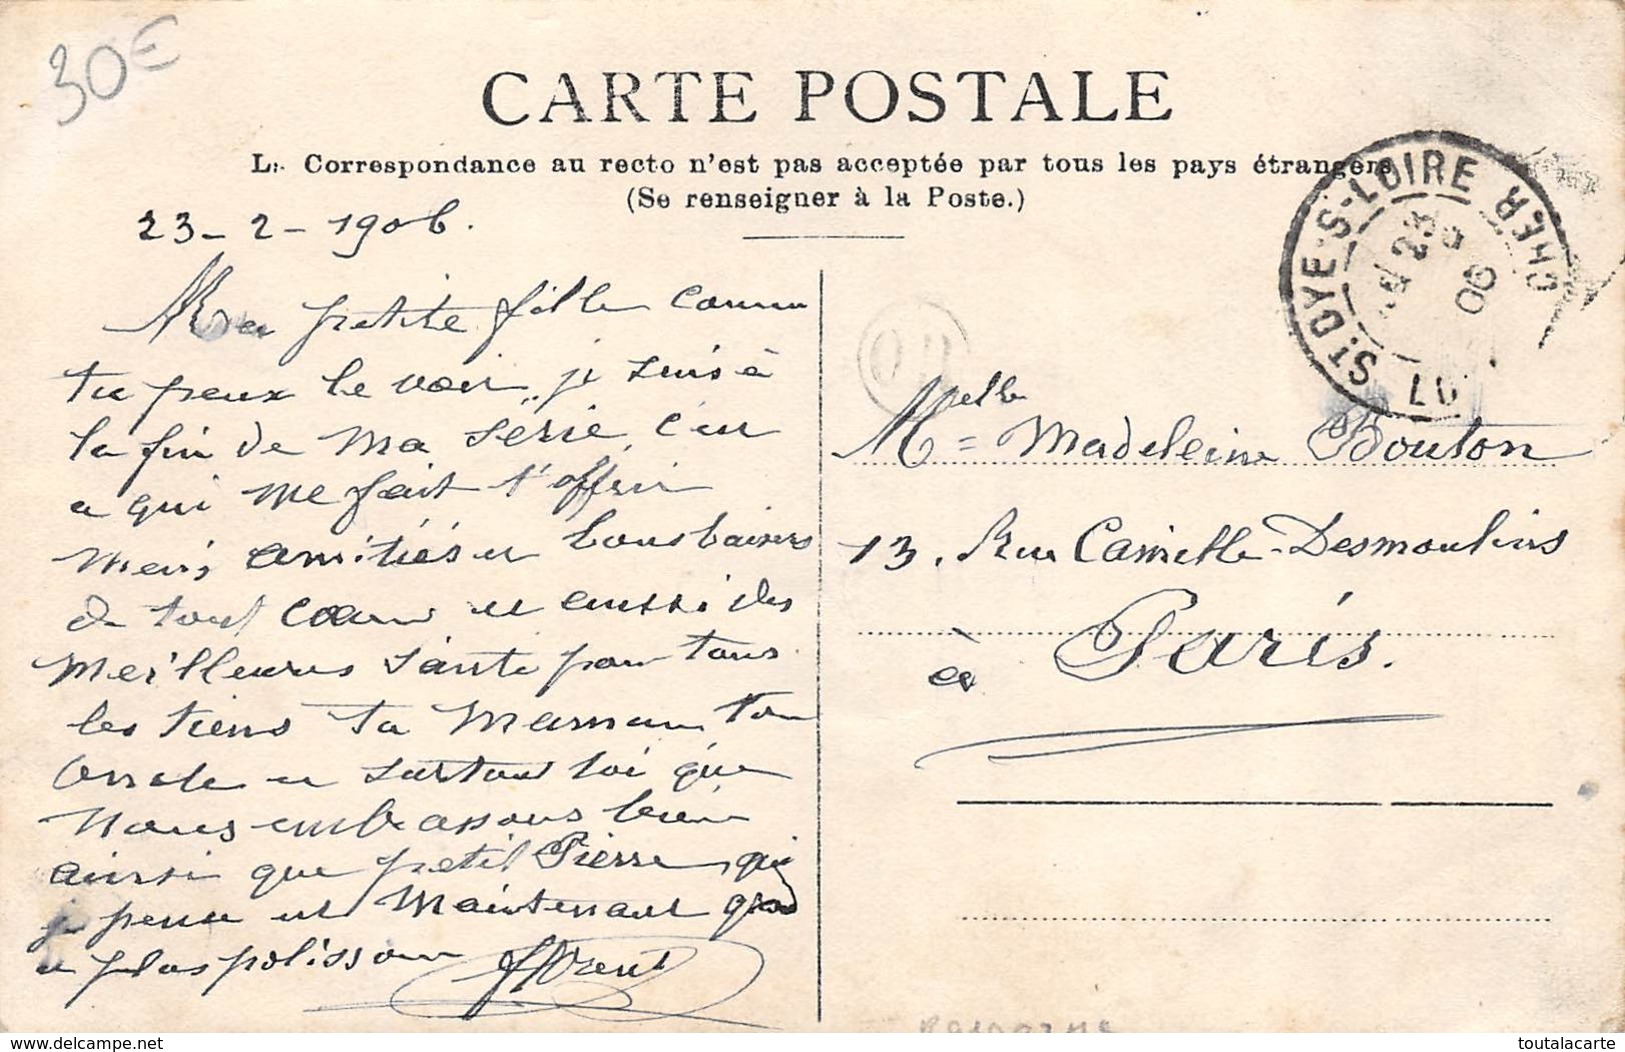 30€
CARTE POSTALE
La Correspondance au recto n'est pas acceptée par tous les pays étrangers
(Se renseigner à la Poste.)
ST DYE-S-LOIRE
23
06
LOIR & CHER
23-2-1906.
Ma petite fille comme
tu peux le voir, je suis à
la fin de ma série, c'en
a qui me fait t'offrir
mes amitiés et bons baisers
de tout cœur et aussi des
meilleures santé pour tous
les tiens ta maman ton
oncle et surtout toi que
nous embrassons bien
ainsi que petit Pierre, qui
je pense est maintenant grand
a plus polisson
OU
Melle Madeleine Bouton
13. Rue Camille-Desmoulins
à Paris.
toutalacarte
www.delcampe.net